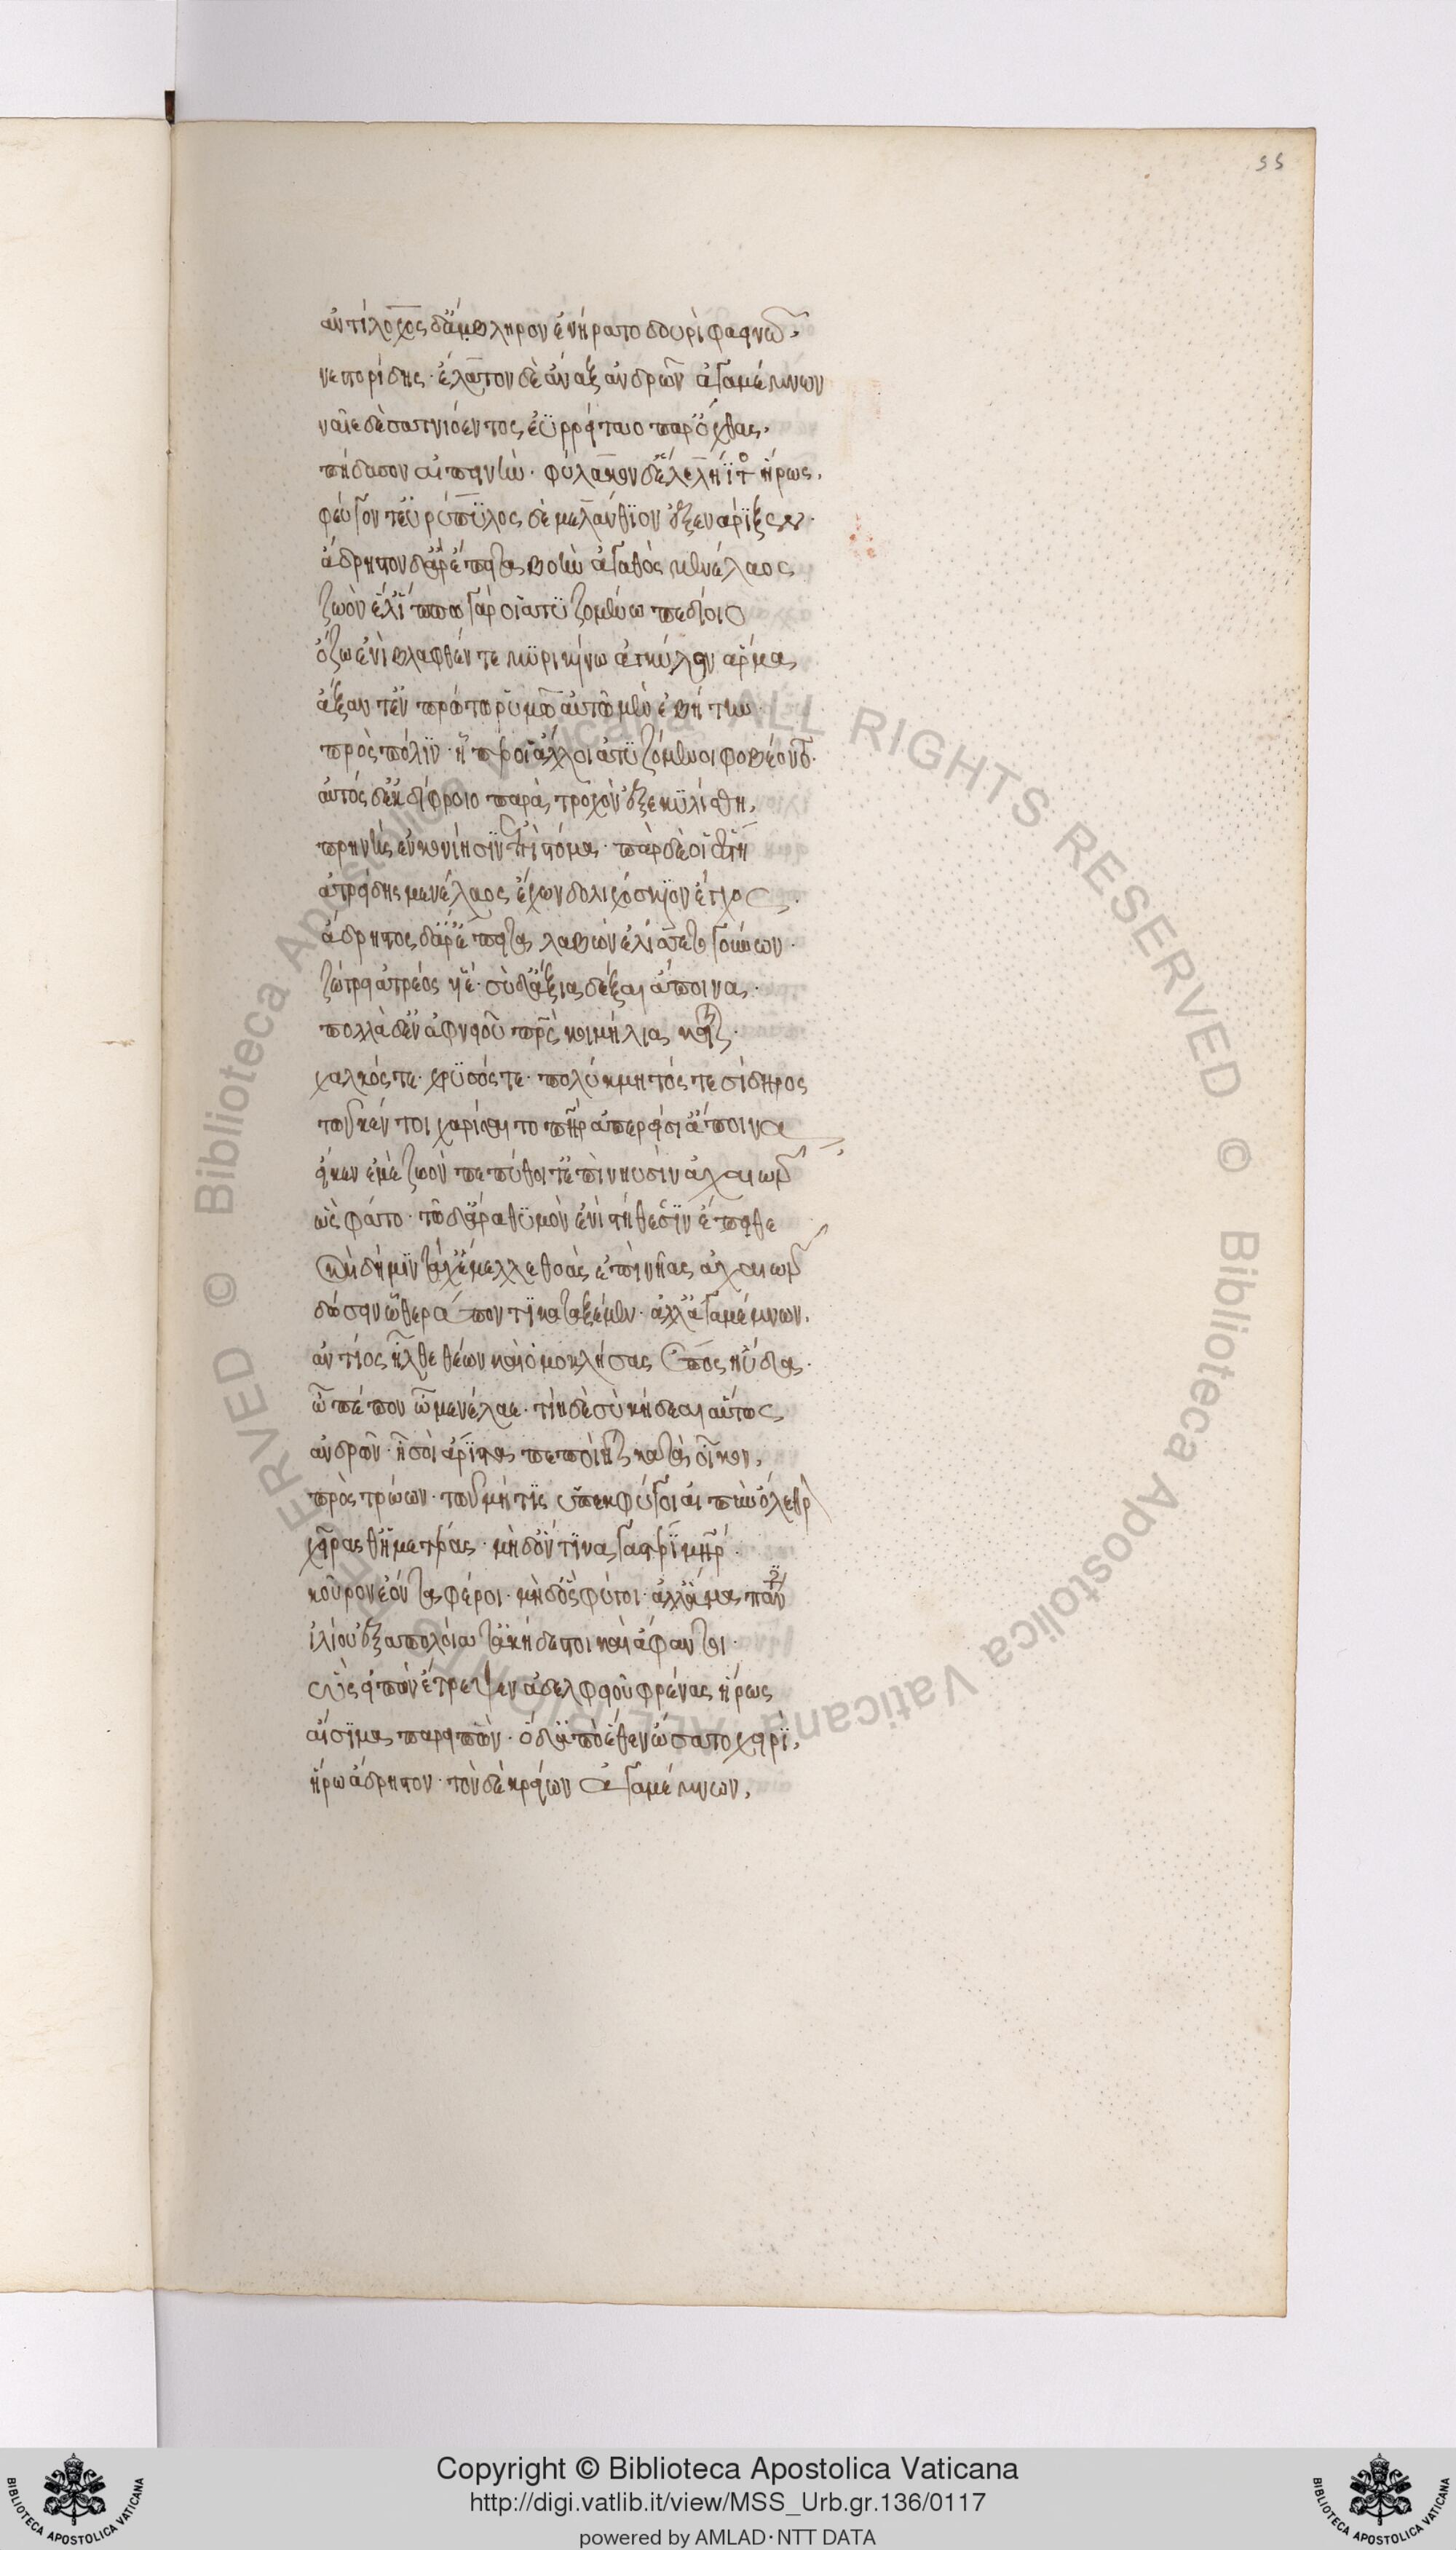 ἀντίλοχος δ' ἄμβληρον ἐνήρατο δουρὶ φαεινῶ,
νεστορίδης· ἔλατον δὲ ἄναξ ἀνδρῶν ἀγαμέμνων
ναῖε δὲ σατνιόεντος ἐϋρρείταο παρ' ὄχθας.
πήδασον αἰπεινήν· φύλακον δ' ἕλε λήϊτος ἥρως.
φεύγοντ' εὐρύπυλος δὲ μελάνθϊον ἐξενάρϊξεν·
ἄδρηστον δ' ἄρ' ἔπειτα βοὴν ἀγαθὸς μενέλαος
ζωὸν ἕλ' ἵππω γάρ οἱ ἀτυζομένω πεδίοιο
ὄζω ἐνὶ βλαφθέντε μυρικίνω ἀγκύλον ἅρμα
ἄξαντ' ἐν πρώτω ῥυμῶ αὐτὼ μὲν ἐβήτην
πρὸς πόλϊν· ᾗπερ οἱ ἄλλοι ἀτυζόμενοι φοβέοντο·
αὐτὸς δ' ἐκ δίφροιο παρὰ τροχὸν ἐξεκυλίσθη,
πρηνὴς ἐν κονίησϊν ἐπὶ στόμα· πὰρ δέ οἱ ἔστη
ἀτρείδης μενέλαος ἔχων δολιχόσκϊον ἔγχος.
ἄδρηστος δ' ἄρ' ἔπειτα λαβὼν ἐλίσσετο γούνων·
ζώγρει ἀτρέος υἱέ· σὺ δ' ἄξια δέξαι ἄποινα·
πολλὰ δ' ἐν ἀφνειοῦ πατρὸς κειμήλια κεῖται·
χαλκός τε· χρϋσός τε· πολύκμητός τε σίδηρος
τῶν κέν τοι χαρίσαιτο πατὴρ ἀπερείσι' ἄποινα
εἴ κεν ἐμὲ ζωὸν πεπύθοιτ' ἐπὶ νηυσὶν ἀχαιῶν
ὣς φάτο· τῶ δ' ἄρα θυμὸν ἐνὶ στήθεσϊν ἔπειθε
καὶ δή μϊν τάχ' ἔμελλε θοὰς ἐπὶ νῆας ἀχαιῶν
δώσειν ᾧ θεράποντϊ καταξέμεν· ἀλλ' ἀγαμέμνων.
ἀντίος ἦλθε θέων καὶ ὁμοκλήσας ἔπος ηὔδα·
ὦ πέπον ὦ μενέλαε· τίη δὲ σὺ κήδεαι αὔτως
ἀνδρῶν· ἦ σοὶ ἄρϊστα πεποίηται κατὰ οἶκον,
πρὸς τρώων· τῶν μή τϊς ὑπεκφύγοι αἰπὺν ὄλεθρον
χεῖράς θ' ἡμετέρας· μηδ' ὅν τϊνα γαστέρϊ μήτηρ·
κοῦρον ἐόντα φέροι· μηδ' ὃς φύγοι· ἀλλ' ἅμα πάντες
ἰλίου ἐξαπολοίατ' ἀκήδεστοι καὶ ἄφαντοι·
ὣς εἰπὼν ἔτρεψεν ἀδελφειοῦ φρένας ἥρως
αἴσϊμα παρειπών· ὁ δ' ἀπὸ ἕθεν ὤσατο χειρὶ,
ἥρω' ἄδρηστον· τὸν δὲ κρείων ἀγαμέμνων,
55
Copyright © Biblioteca Apostolica Vaticana
http://digi.vatlib.it/view/MSS_Urb.gr.136/0117
powered by AMLAD·NTT DATA
© Biblioteca Apostolica Vaticana ALL RIGHTS RESERVED © Biblioteca Apostolica Vaticana ALL RIGHTS RESERVED
BIBLIOTECA APOSTOLICA VATICANA
BIBLIOTECA APOSTOLICA VATICANA